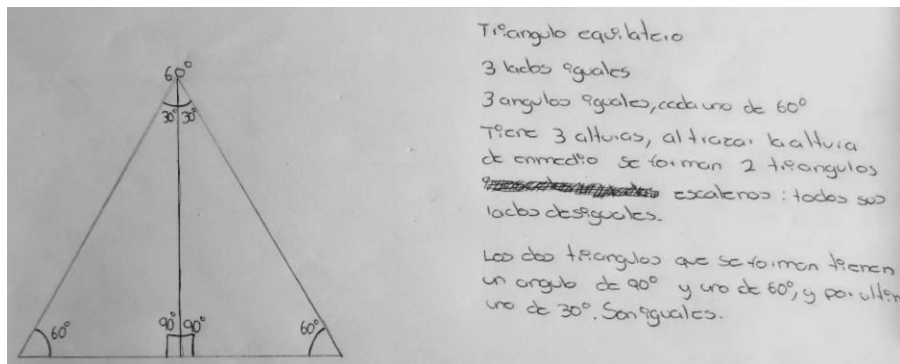 60°
30° 30°
90° 90°
60° 60°
Triangulo equilatero
3 lados iguales
3 angulos iguales, cada uno de 60°
Tiene 3 alturas, al trazar la altura
de enmedio se forman 2 triangulos
escalenos: todos sus
lados desiguales.
Los dos triangulos que se forman tienen
un angulo de 90° y uno de 60°, y por
uno de 30°. Son iguales.